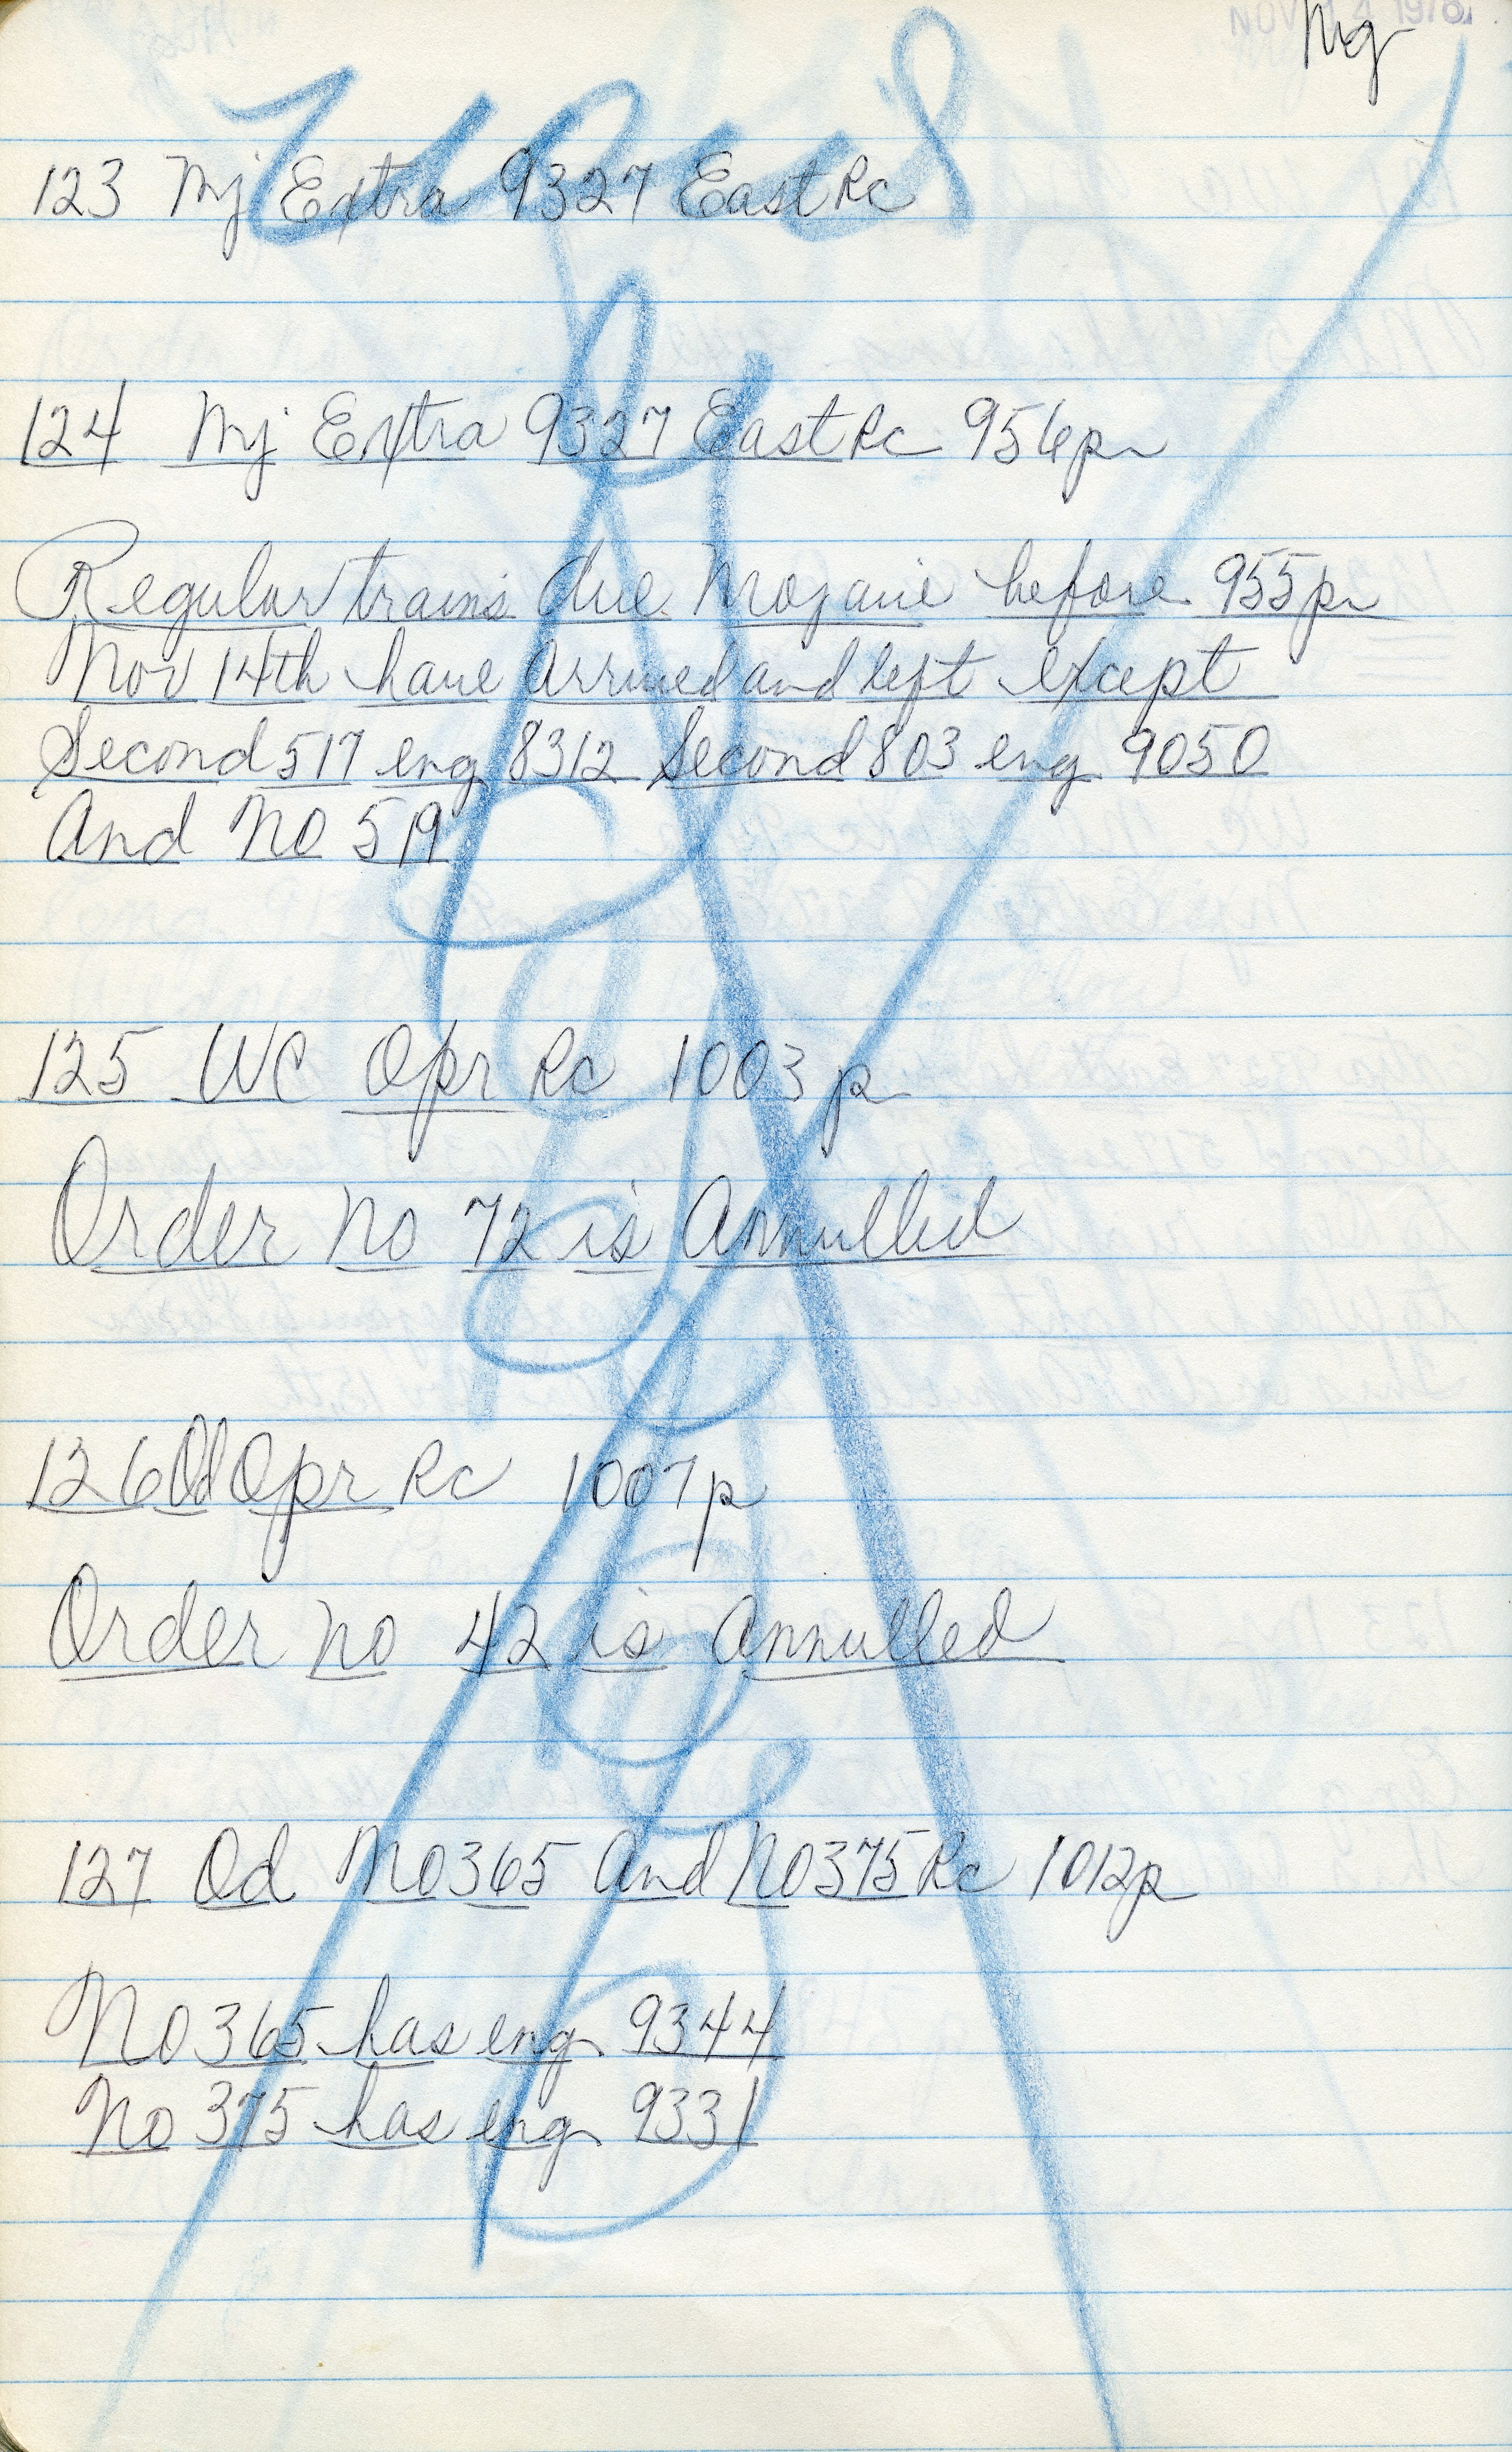 NOV 14 1978
mg
123 Mj Extra 9327 East Rc
124 Mj Extra 9327 East Rc 956p
Regular trains due Mozanie before 955p
Nov 14th have arrived and left except
Second 517 eng 8312 Second 803 eng 9050
And No 519
125 WC Opr Rc 1003p
Order No 72 is Annulled
126 Od Opr Rc 1007p
Order no 42 is Annulled
127 Od No 365 And No 375 Rc 1012p
No 365 has eng 9344
No 375 has eng 9331